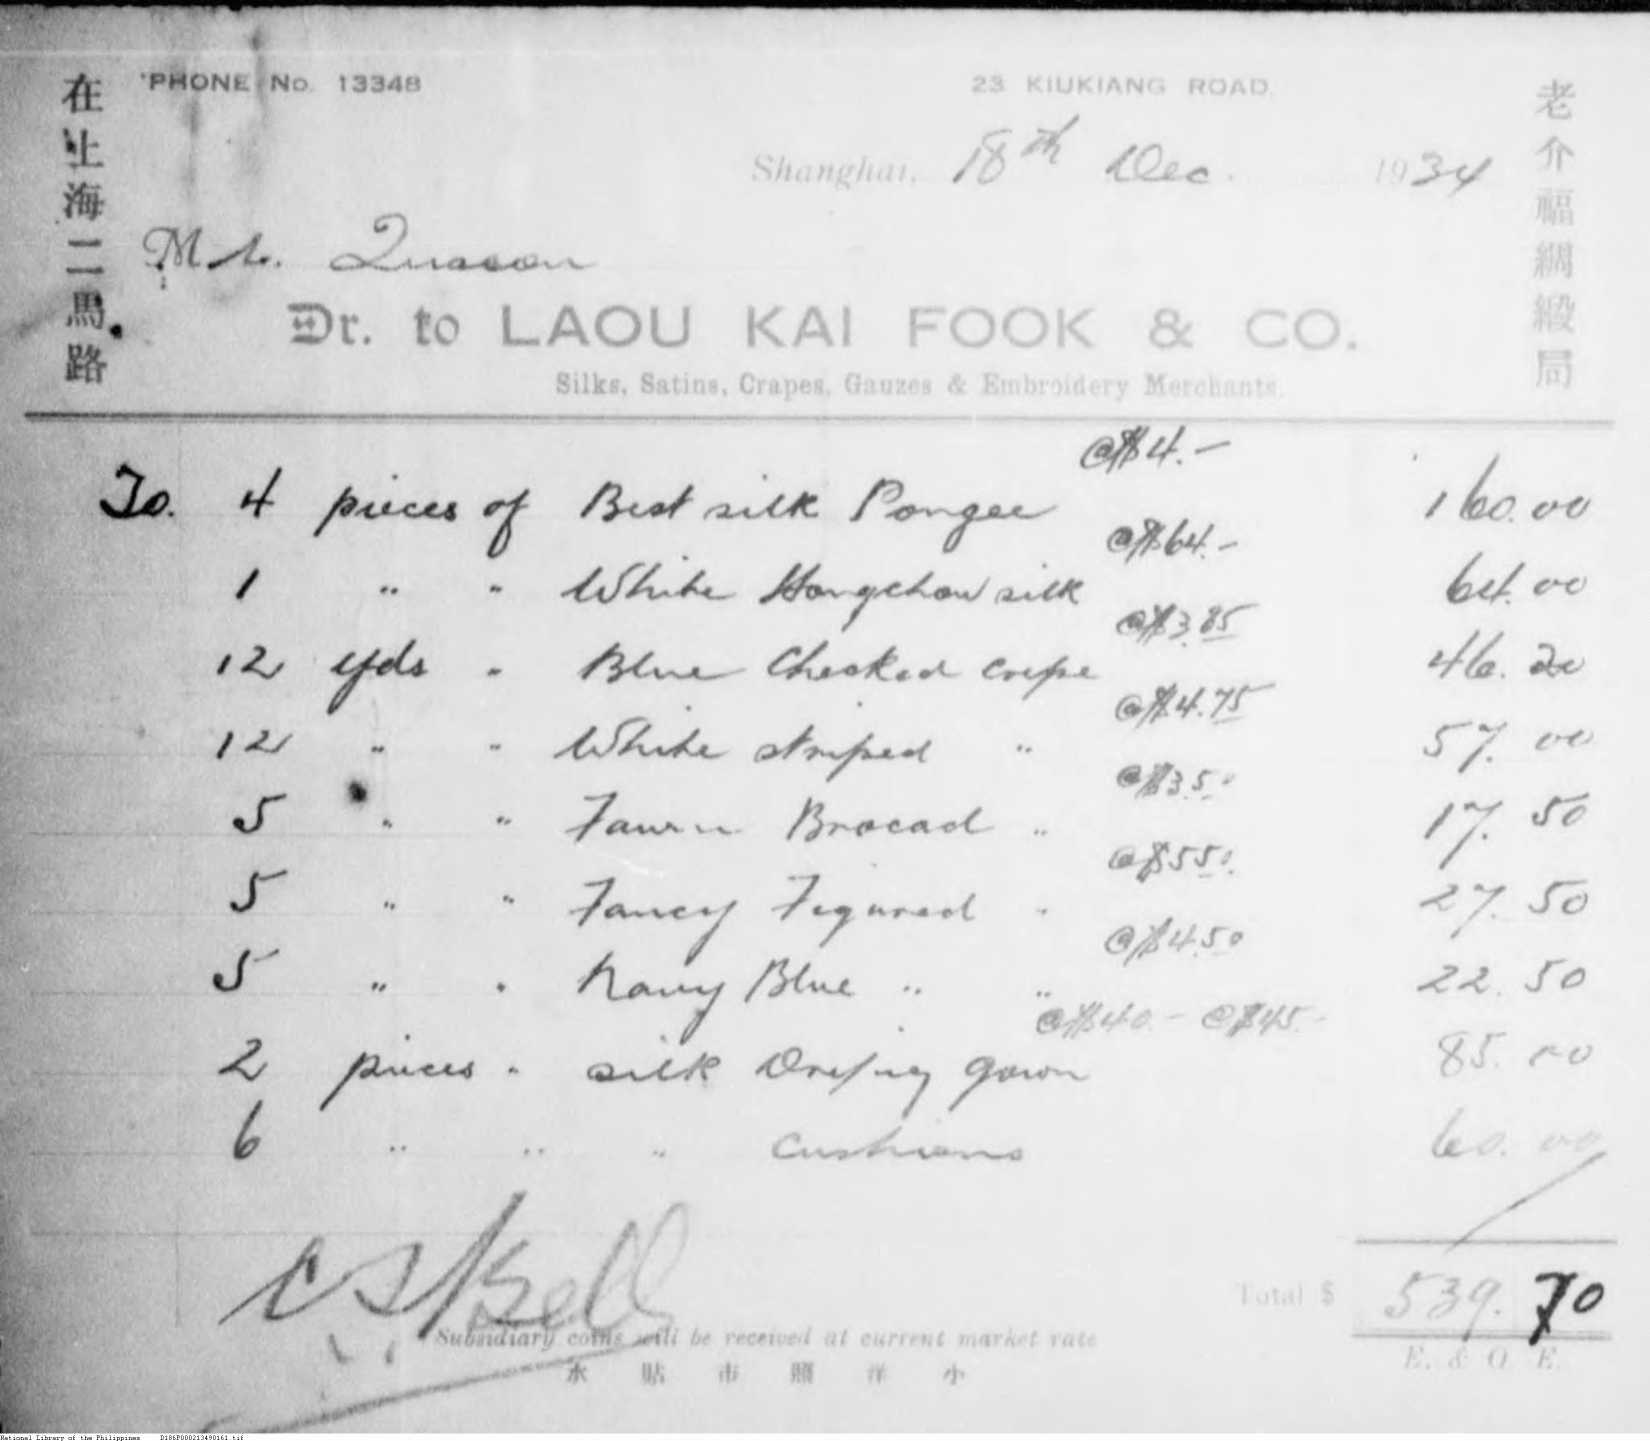 'PHONE No. 13348
23 KIUKIANG ROAD.
在上海二馬路
老介福綢緞局
Shanghai, 18th Dec. 1934
Mr. Quason
Dr. to LAOU KAI FOOK & CO.
Silks, Satins, Crapes, Gauzes & Embroidery Merchants.
@$4.-
To. 4 pieces of Best silk Pongee 160.00
@$64.-
1 " " White Hangchow silk 64.00
@$3.85
12 yds " Blue Checked crepe 46.20
@$4.75
12 " " White striped " 57.00
@$3.50
5 " " Fawn Brocad " 17.50
@$5.50
5 " " Fancy Figured " 27.50
@$4.50
5 " " Navy Blue " " 22.50
@$40.- @$45.-
2 pieces " silk Dressing gown 85.00
6 " " " Cushions 60.00
Total $ 539.70
Subsidiary coins will be received at current market rate
E. & O. E.
水貼市照洋小
National Library of the Philippines D186P000213490161.tif